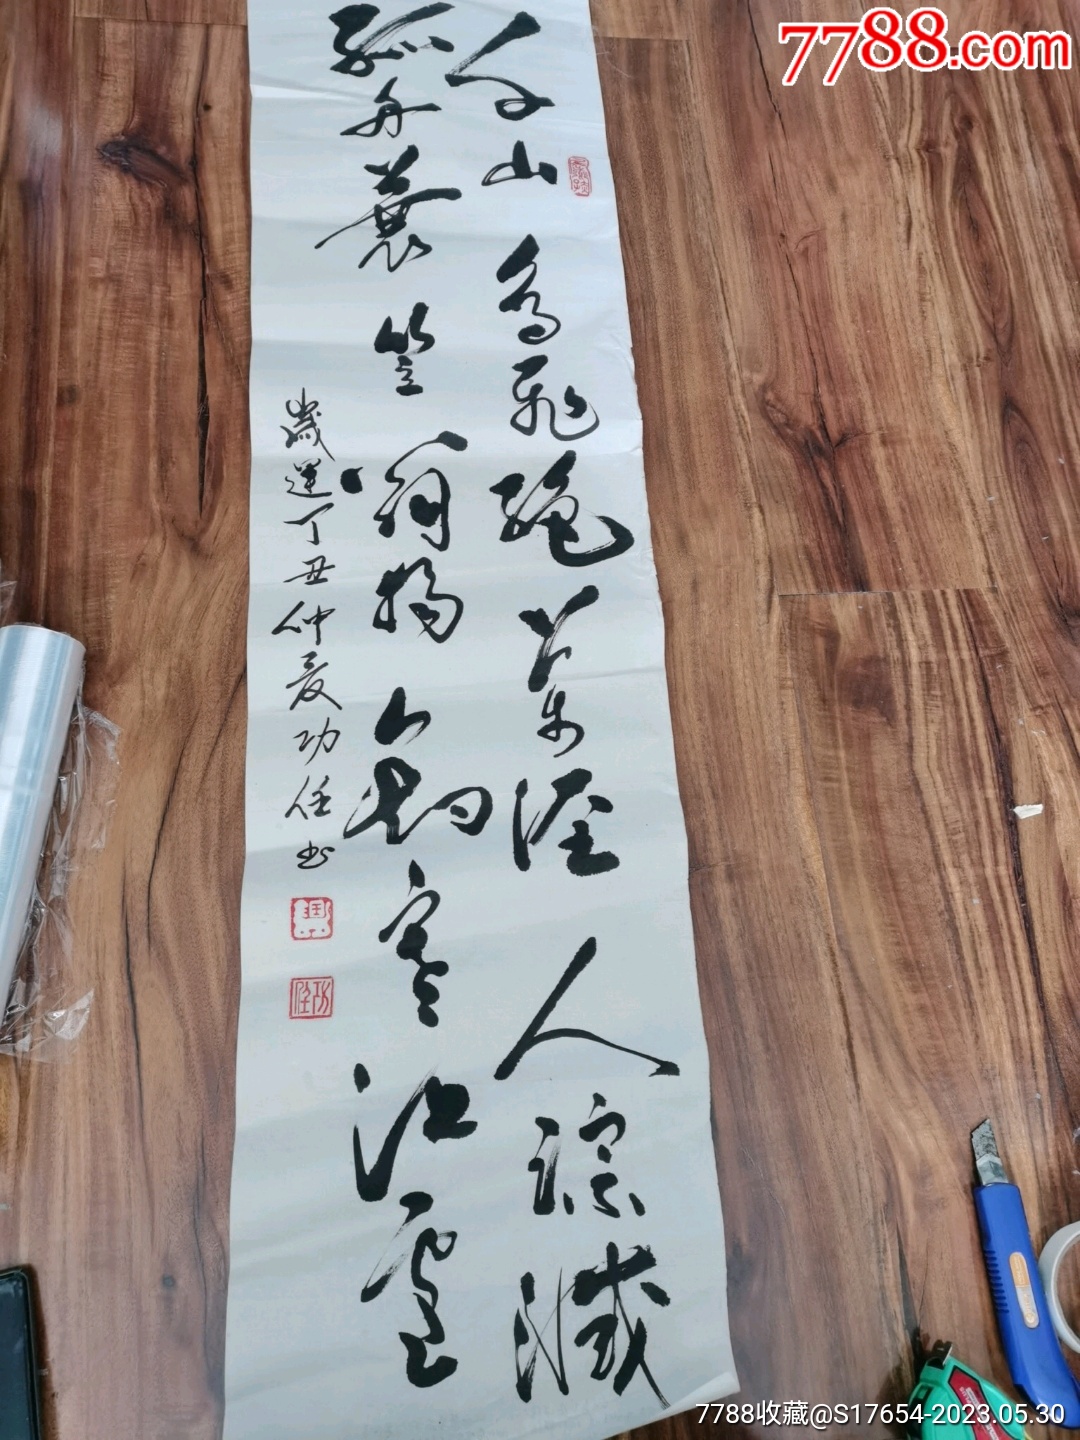 7788.com
千山鳥飛絕萬徑人踪滅
孤舟蓑笠翁獨釣寒江雪
歲運丁丑仲夏功任书
功任
7788收藏@S17654-2023.05.30